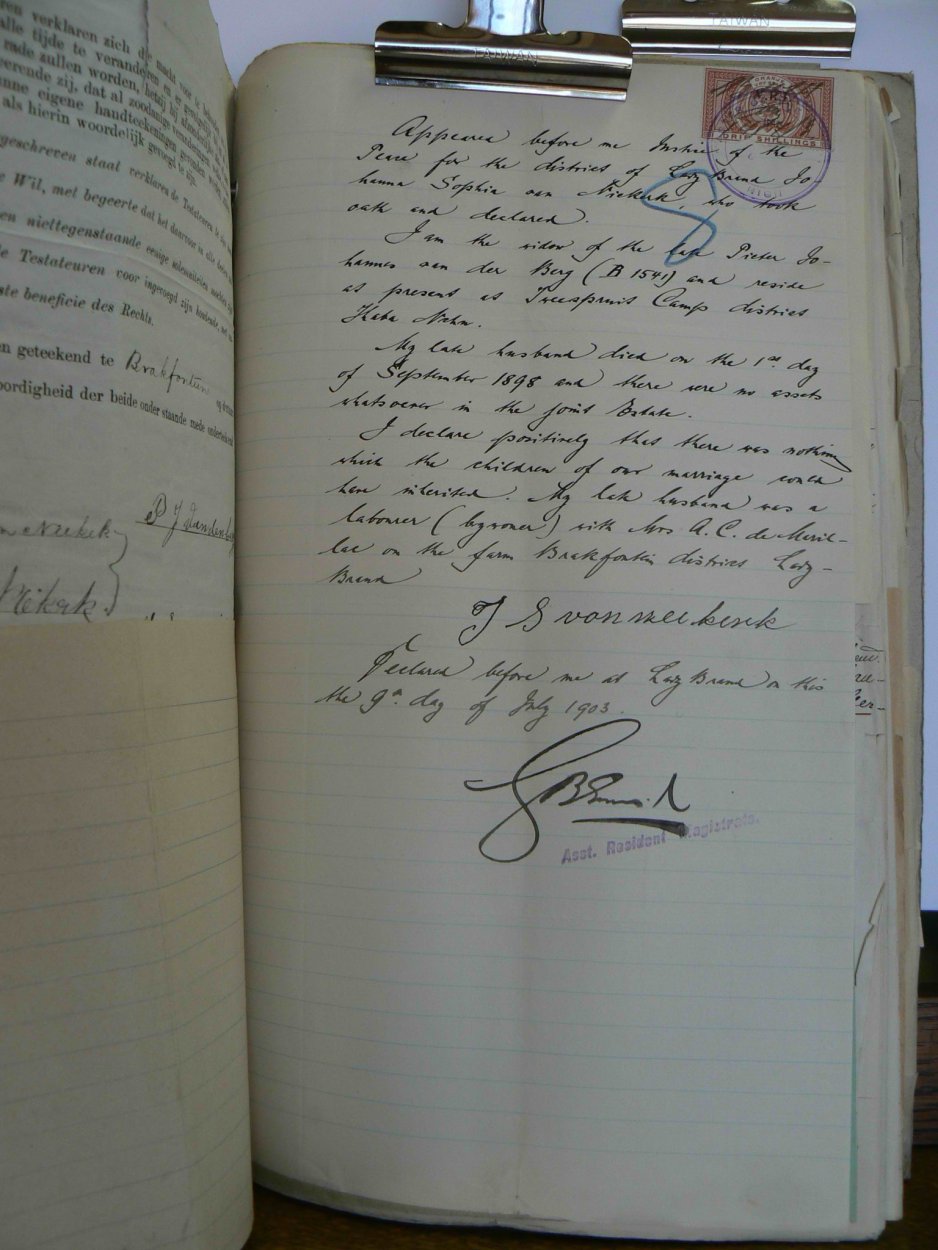 TAIWAN
TAIWAN
ren verklaren zich de macht voor te behouden
alle tijde te veranderen en er
rade zullen worden, hetzij bij afzonderlijke
eerende zij, dat al zoodanige veranderingen
nne eigene handteekeningen gevonden
als hierin woordelijk gevoegd te zijn.
geschreven staat verklaren de Testateuren te zijn
e Wil, met begeerte dat het daarvoor in alle
en niettegenstaande eenige solemniteiten mochten zijn
de Testateuren voor ingevoegd zijn houdende, met
ste beneficie des Rechts.
en geteekend te Brakfontein op
oordigheid der beide onder staande mede onderteekend
P J Vandenberg
n Niekerk
Niekerk
ORANJE
DRIE SHILLINGS
Appeared before me Justice of the
Peace for the district of Lady Brand Jo-
hanna Sophia van Niekerk, who took
oath and declared.
I am the widow of the late Pieter Jo-
hannes van der Berg (B 1541) and reside
at present at Tweespruit Camp district
Thaba Nchu.
My late husband died on the 1st day
of September 1898 and there were no assets
whatsoever in the joint Estate.
I declare positively that there was nothing
which the children of our marriage could
have inherited. My late husband was a
labourer (bywoner) with Mrs A. C. de Meril-
lac on the farm Brakfontein district Lady-
Brand
J S van niekerk
Declared before me at Lady Brand on this
the 9th day of July 1903.
Asst. Resident Magistrate.